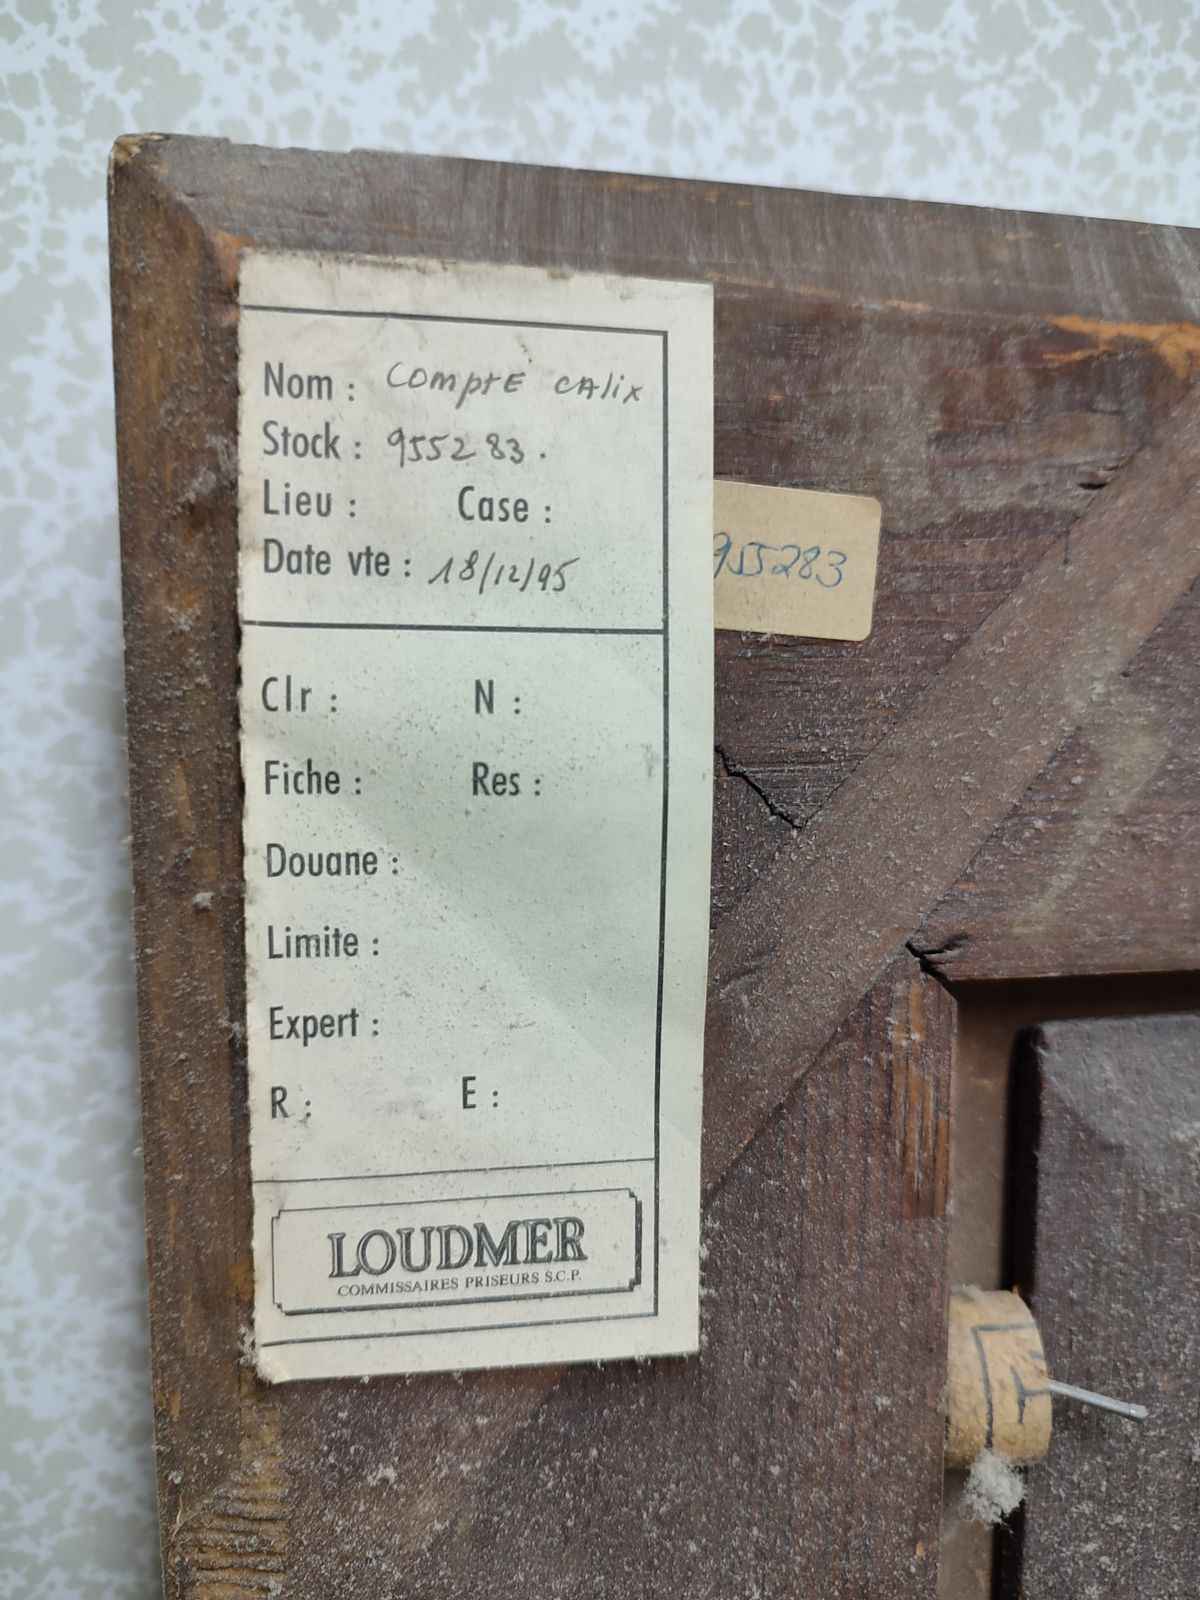 Nom : COMPTE CALIX
Stock : 955283.
Lieu : Case :
Date vte : 18/12/95
955283
Clr : N :
Fiche : Res :
Douane :
Limite :
Expert :
R : E :
LOUDMER
COMMISSAIRES PRISEURS S.C.P.